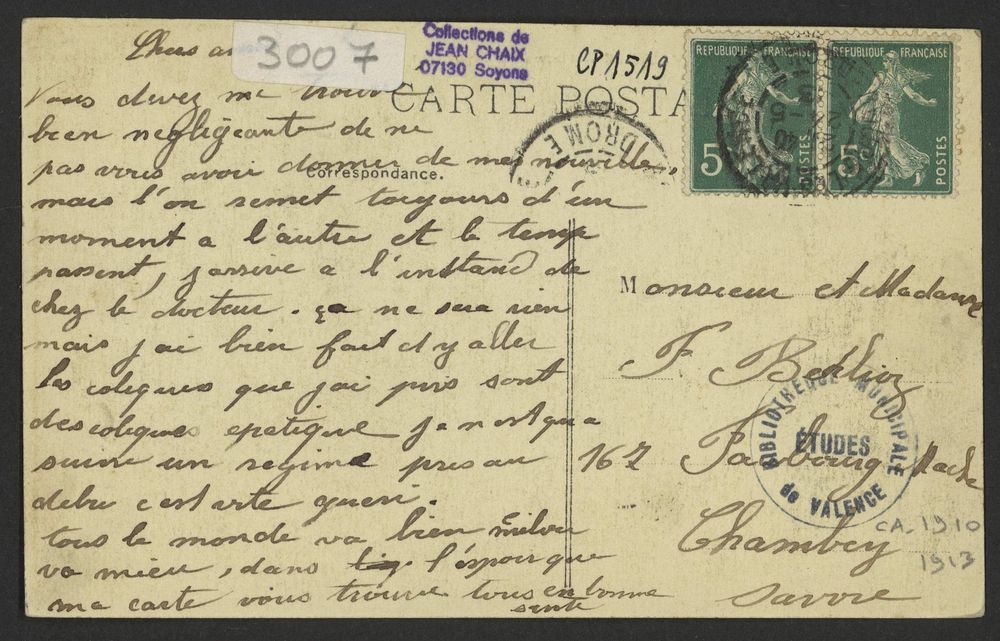 Chers
3007
Collections de
JEAN CHAIX
07130 Soyons
CP1519
CARTE POSTA
REPUBLIQUE FRANÇAISE
5c
POSTES
REPUBLIQUE FRANÇAISE
5c
POSTES
DROME
Correspondance.
Vous devez me trouv
bien negligeante de ne
pas vous avoir donner de mes nouvelle,
mais l'on remet toujours d'un
moment a l'autre et le temp
passent, j arrive a l'instand de
chez le docteur. ça ne sera rien
mais j ai bien fait d y aller
les coliques que j ai pris sont
des coliques epatique je n ai qua
suivre un regime pris au
debu c est vite gueri.
tous le monde va bien
va mieu, dans l'espoir que
ma carte vous trouve tous en bonne
sante
Monsieur et Madame
F.
167 Faubourg Maché
Chambey
Savoie
BIBLIOTHEQUE MUNICIPALE
ÉTUDES
de VALENCE
CA. 1910
1913